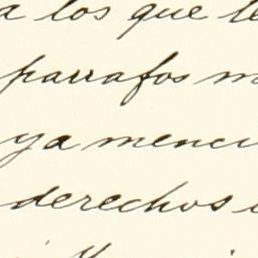 a los que te
parrafos m
ya menci
derechos